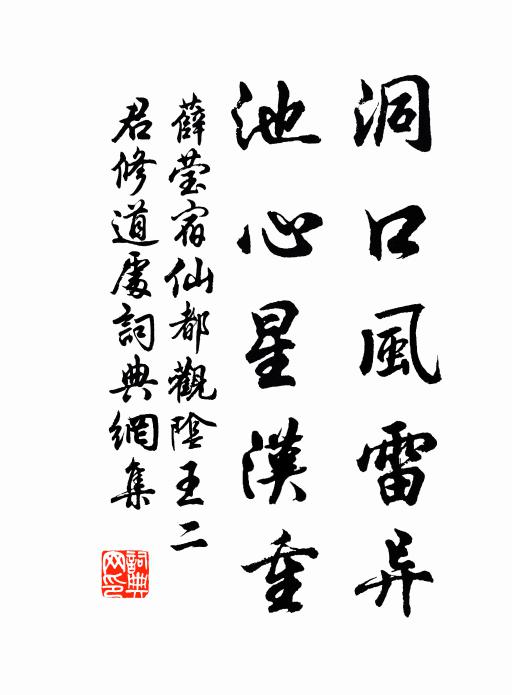 洞口風雷异
池心星漢重
薛瑩宿仙都觀陰王二
君修道處詞典網集
詞典
网印